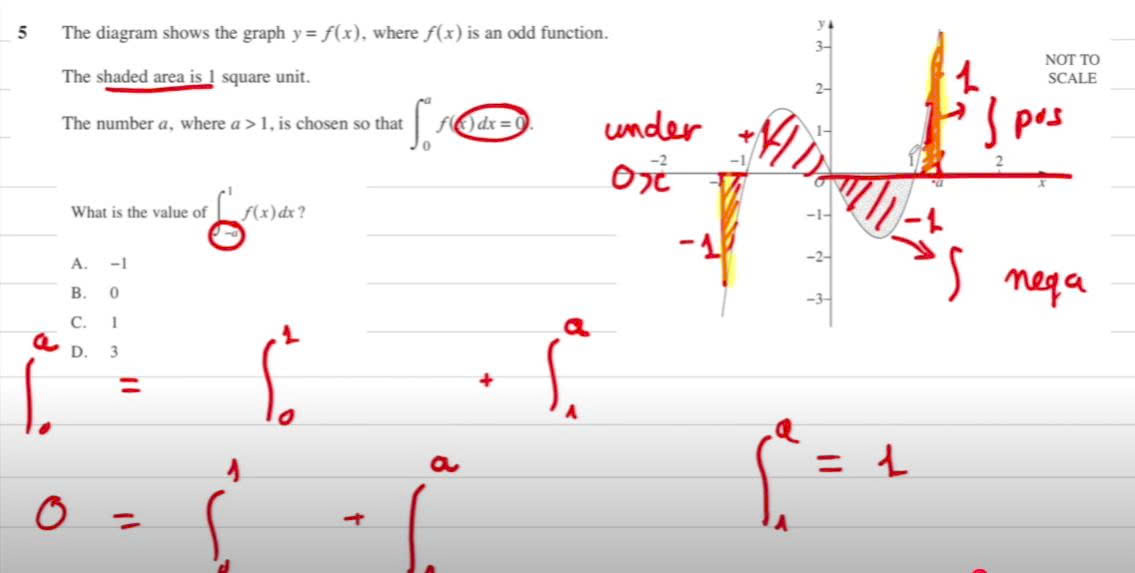 5 The diagram shows the graph y = f(x), where f(x) is an odd function.
The shaded area is 1 square unit.
The number a, where a > 1, is chosen so that ∫₀ᵃ f(x) dx = 0.
What is the value of ∫₋ₐ¹ f(x) dx?
A. −1
B. 0
C. 1
D. 3
y
NOT TO
SCALE
3
2
1
−2 −1 O 1 a 2 x
−1
−2
−3
under
Ox
+1
1
∫ pos
−1
−1
∫ nega
∫₀ᵃ = ∫₀¹ + ∫₁ᵃ
∫₁ᵃ = 1
0 = ∫ 1 + ∫ a